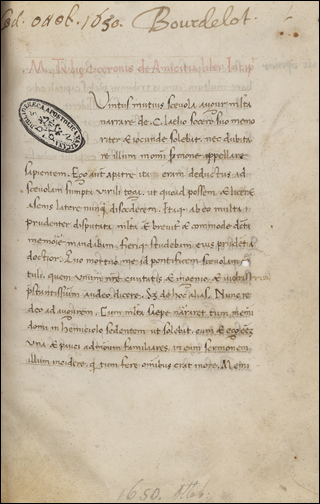 Cod. Ottob. 1650. Bourdelot.
M. Tulii Ciceronis de Amicitia liber Incipi
Vintus mutius scevola augur mlta
narrare de. C. Laelio socero suo memo
riter & iocunde solebat, nec dubita
re illum in omni sermone appellare
sapientem. Ego aut a patre ita eram deductus ad
scevolam sumpta virili toga, ut quoad possem & liceret
a senis latere nunq discederem. Itaq ab eo multa
prudenter disputata mlta & breuit & commode dicta
memoie mandabam fieriq studebam eius prudetia
doctior. Quo mortuo me ad pontificem scevolam
tuli, quem unum nre ciuitatis & ingenio & iustitia
pstantissimum audeo dicere. Sed de hoc alias. Nunc re
deo ad augurem. Cum mlta saepe narraret tum memi
domi in hemiciclo sedentem ut solebat, cum & ego essem
una & pauci admodum familiares, in eum sermonem
illum incidere, q tum fere omnibus erat in ore. Memi
1650. Ottob.